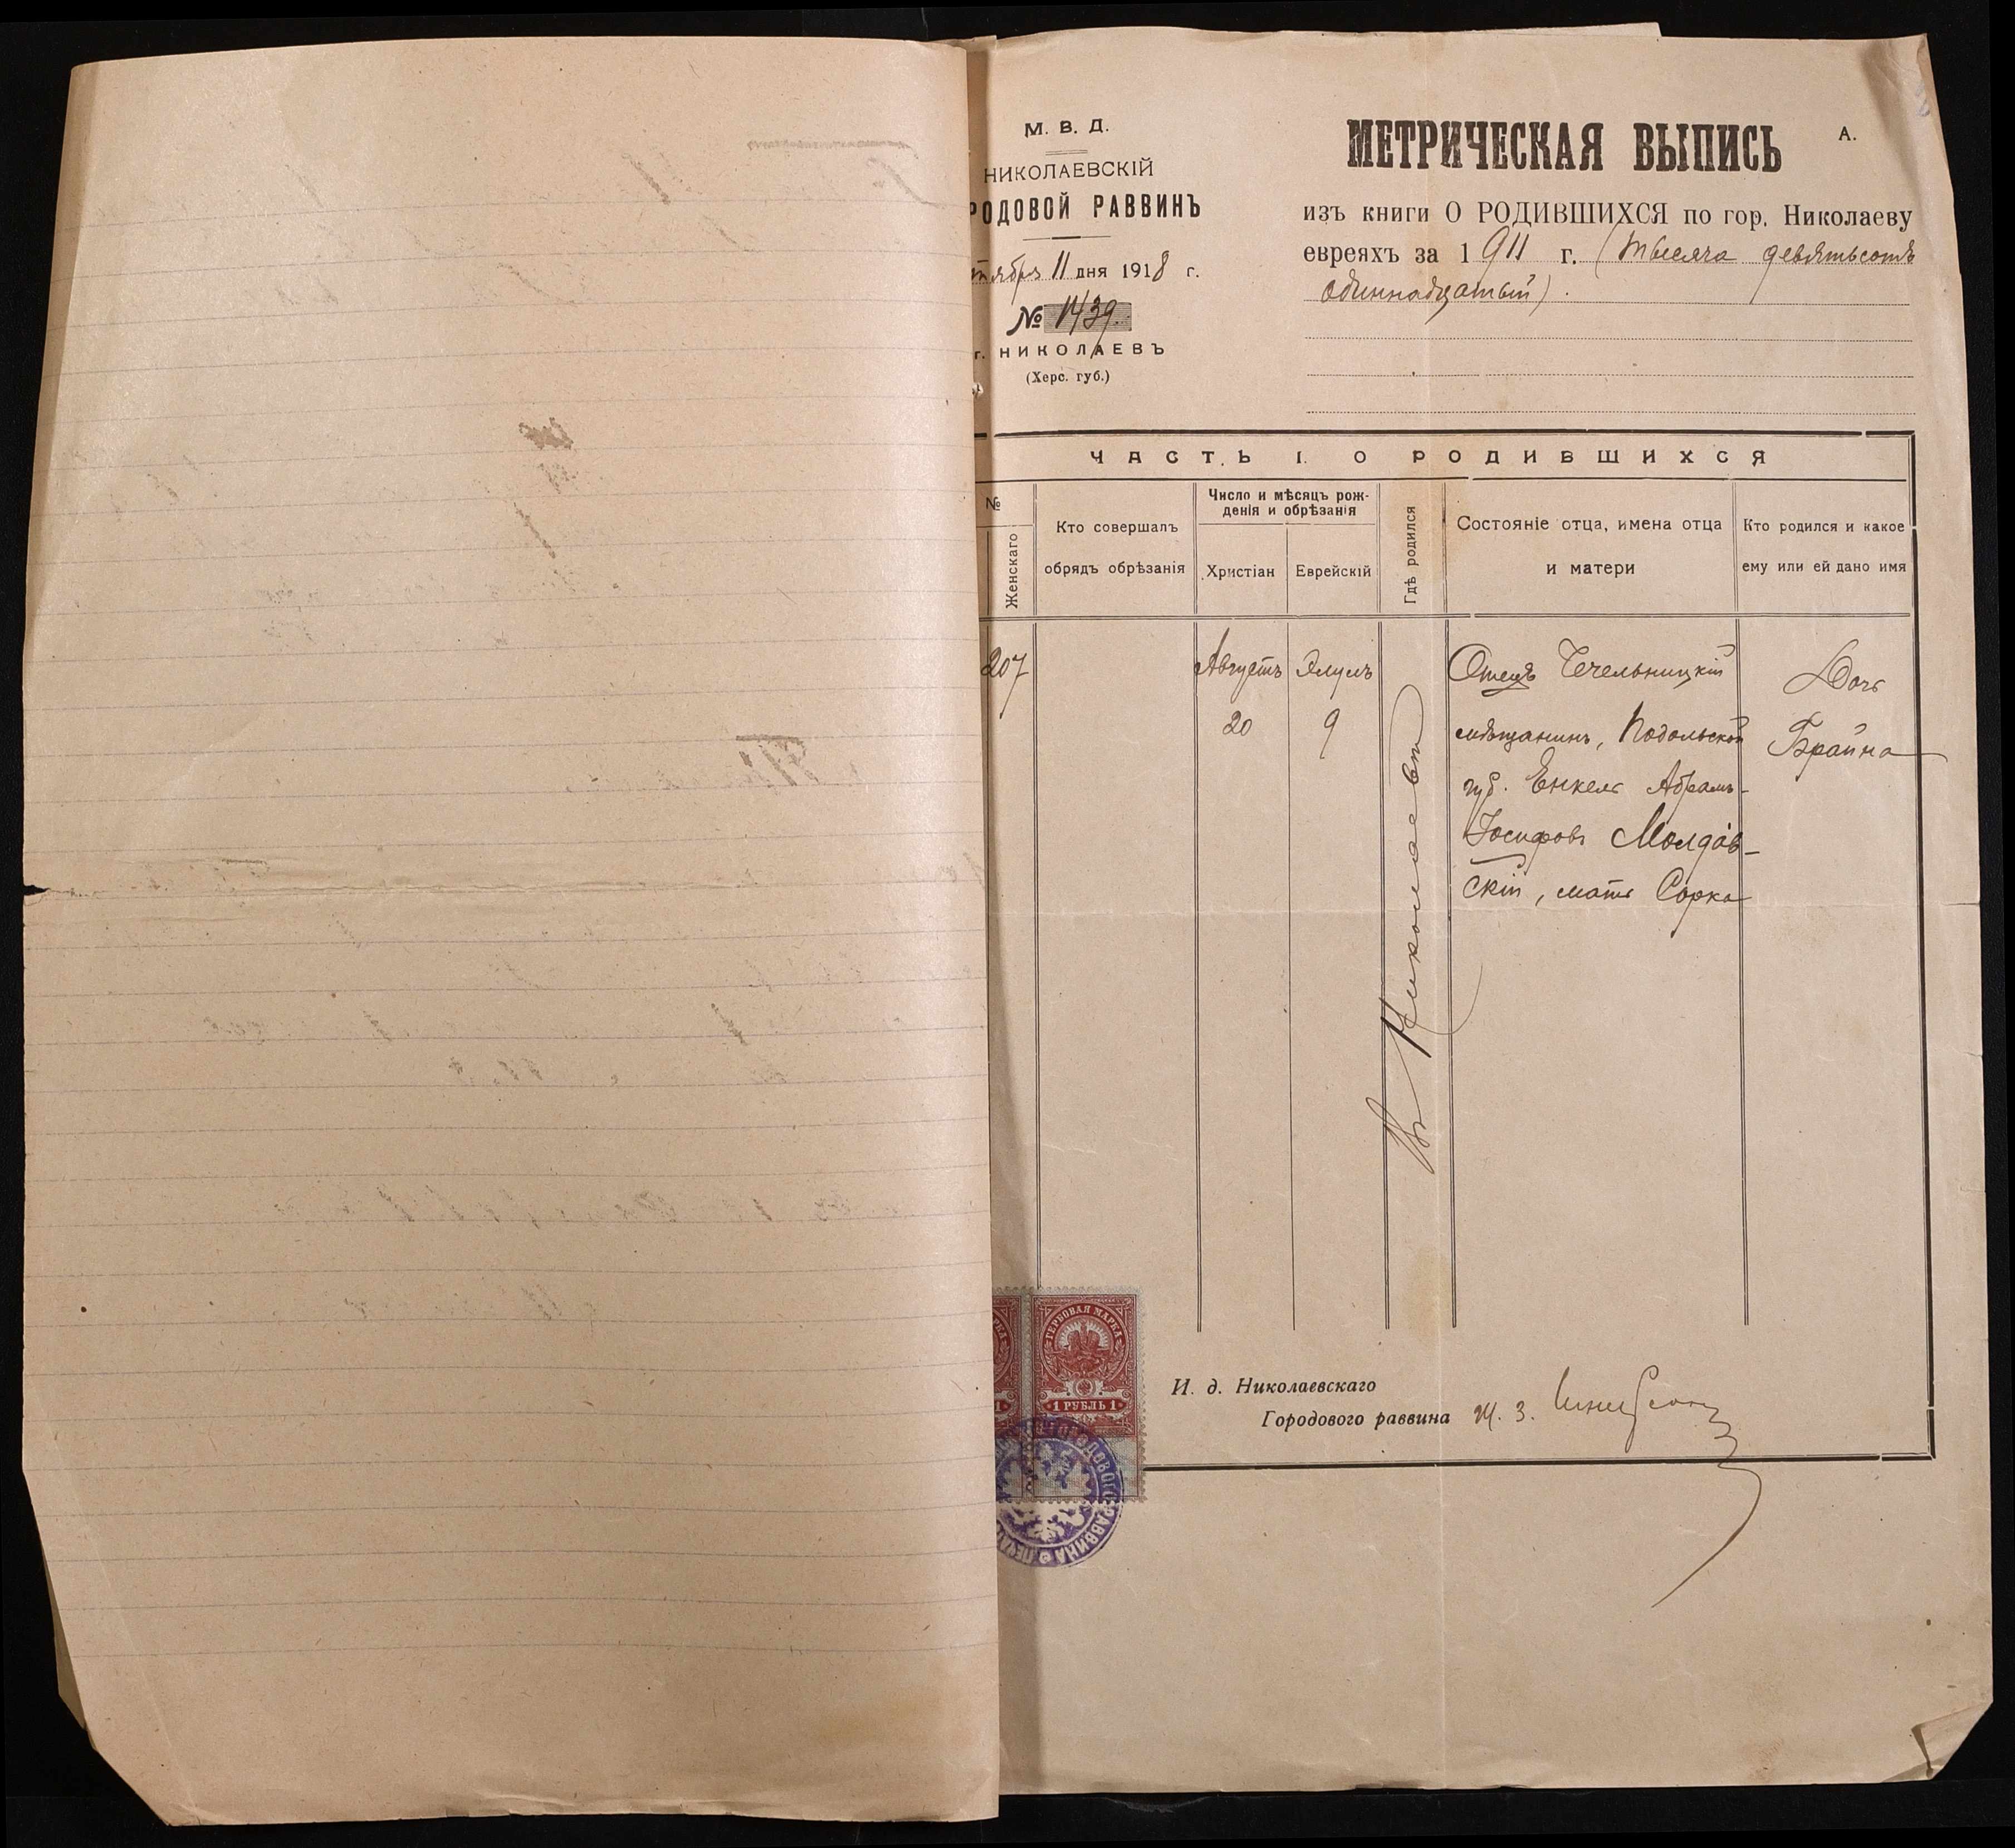 М. В. Д.
НИКОЛАЕВСКІЙ
РОДОВОЙ РАВВИНЪ
тября 11 дня 1918 г.
№ 1439.
г. НИКОЛАЕВЪ
(Херс. губ.)
МЕТРИЧЕСКАЯ ВЫПИСЬ
А.
изъ книги О РОДИВШИХСЯ по гор. Николаеву
евреяхъ за 1911 г. (тысяча девятьсотъ
одиннадцатый).
ЧАСТЬ I. О РОДИВШИХСЯ
№
Женскаго
Кто совершалъ
обрядъ обрѣзанія
Число и мѣсяцъ рож-
денія и обрѣзанія
Христіан
Еврейскій
Гдѣ родился
Состояніе отца, имена отца
и матери
Кто родился и какое
ему или ей дано имя
207
Августъ
20
Элулъ
9
Въ Николаевѣ
Отецъ Чечельницкій
мѣщанинъ, Подольской
губ. Енкель Абрамъ-
Іосифовъ Молдав-
скій, мать Сорка
Дочь
Брайна
ГЕРБОВАЯ МАРКА
1 РУБЛЬ 1
ГОРОДОВОГО РАВВИНА
И. д. Николаевскаго
Городового раввина